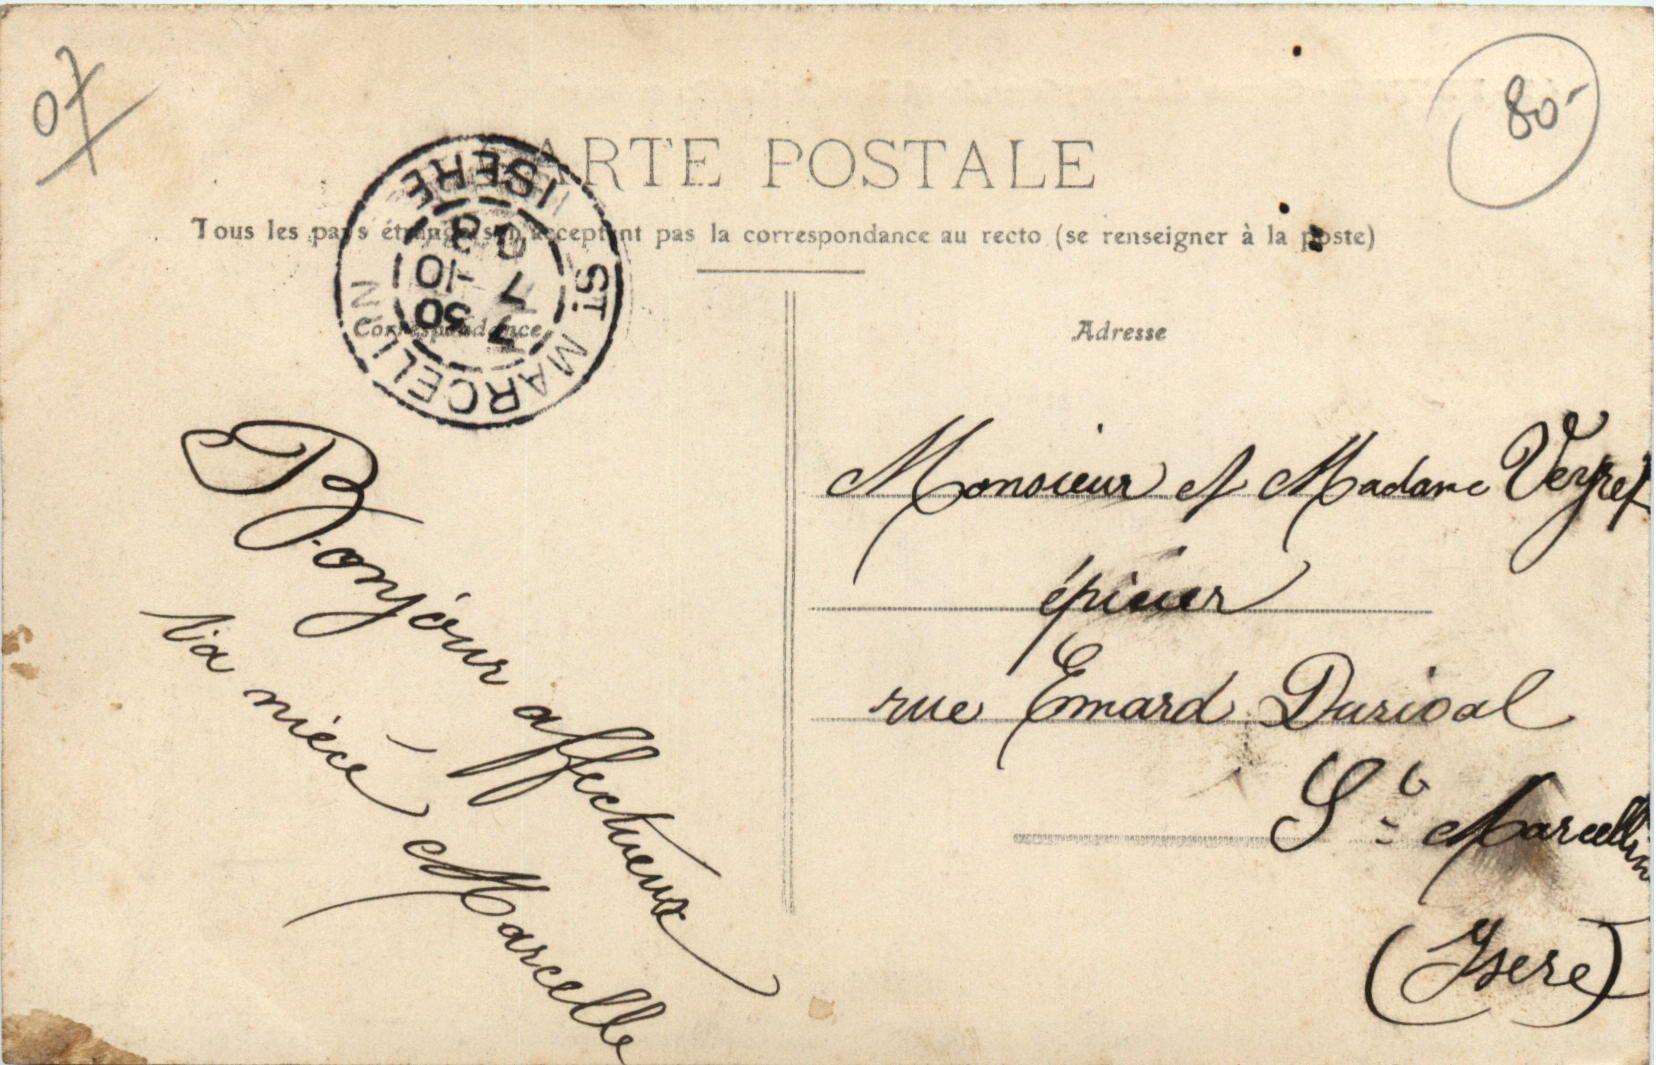 07
80-
CARTE POSTALE
Tous les pays étrangers n'acceptent pas la correspondance au recto (se renseigner à la poste)
Correspondance
Adresse
ST MARCELLIN
ISERE
7 30
7 -10
08
Monsieur et Madame Veyret
épicier
rue Emard Durival
St Marcellin
(Isere)
Bonjour affectueux
Ta nièce Marcelle